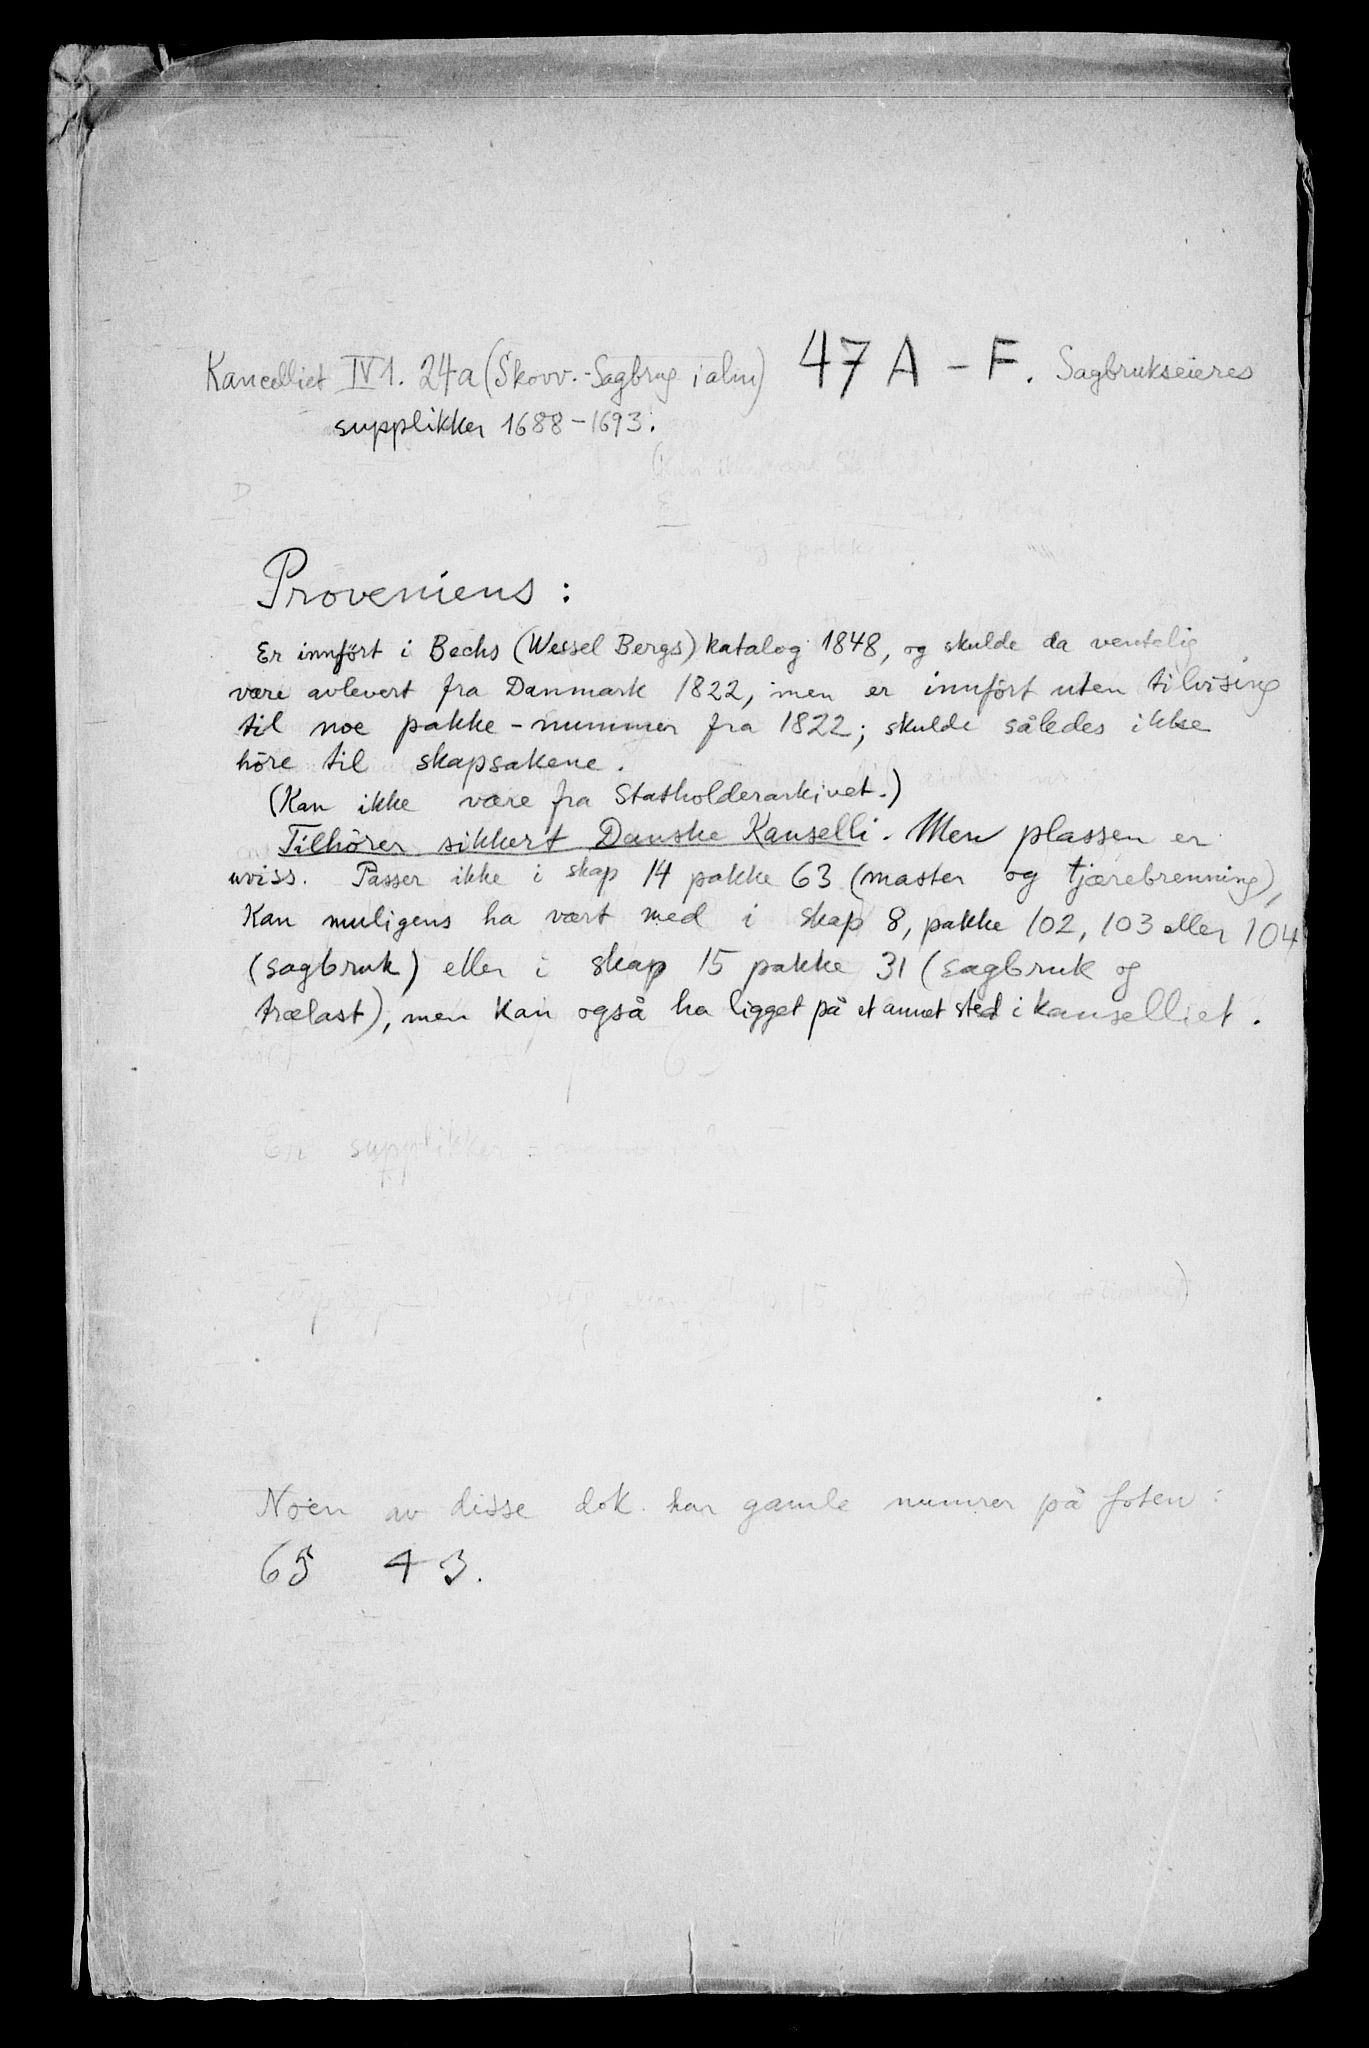 Kancelliet IV 1. 24-a (Skovv.-Sagbrug i alm) 47 A - F. Sagbrukseieres
supplikker 1688-1693.
Proveniens :
Er innført i Bechs (Wessel Bergs) katalog 1848, og skulde da ventelig
være avlevert fra Danmark 1822, men er innført uten tilvising
til noe pakke-nummer fra 1822; skulde således ikke
höre til skapsakene.
(Kan ikke være fra Statholderarkivet.)
Tilhører sikkert Danske Kanselli. Men plassen er
uviss. Passer ikke i skap 14 pakke 63 (master og tjærebrenning),
Kan muligens ha vært med i skap 8, pakke 102, 103 eller 104
(sagbruk) eller i skap 15 pakke 31 (sagbruk og
trælast), men kan også ha ligget på et annet sted i kanselliet.
En supplikker =
Noen av disse dok. har gamle numrer på foten :
65 43.